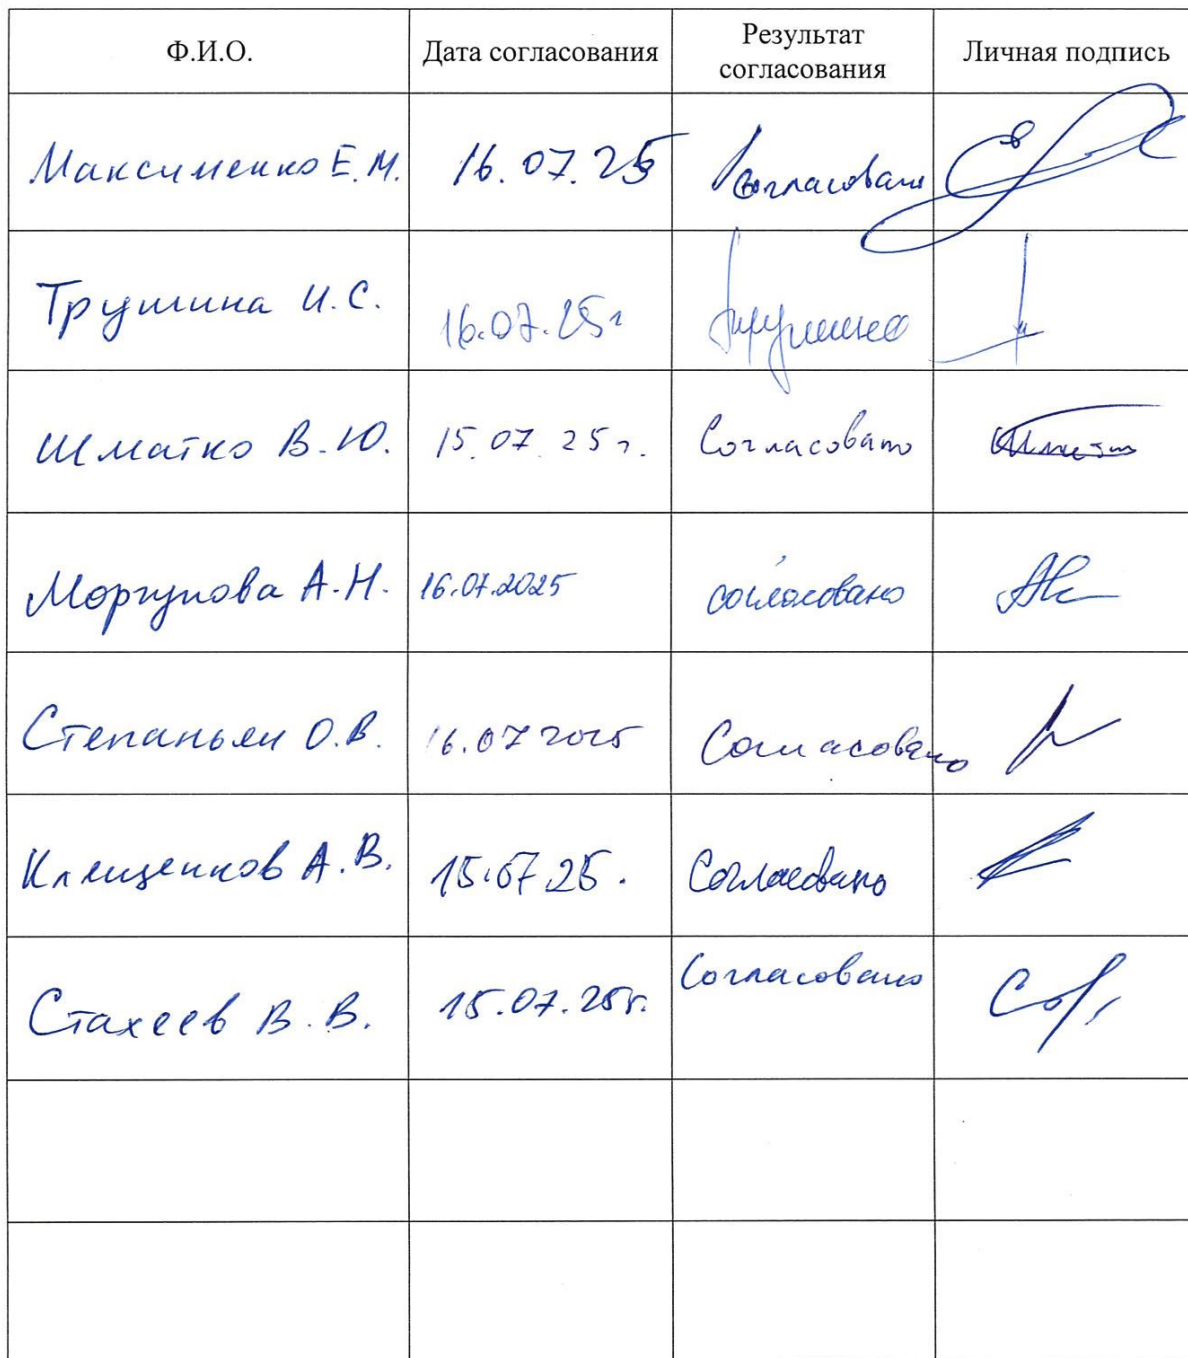 Ф.И.О. Дата согласования Результат согласования Личная подпись
Максименко Е.М. 16.07.25 Согласовано
Трушина И.С. 16.07.25г Трушина
Шматко В.Ю. 15.07.25г. Согласовано
Моргунова А.Н. 16.07.2025 согласовано
Степаньян О.В. 16.07 2025 Согласовано
Клещенков А.В. 15.07.25. Согласовано
Стахеев В.В. 15.07.25г. Согласовано